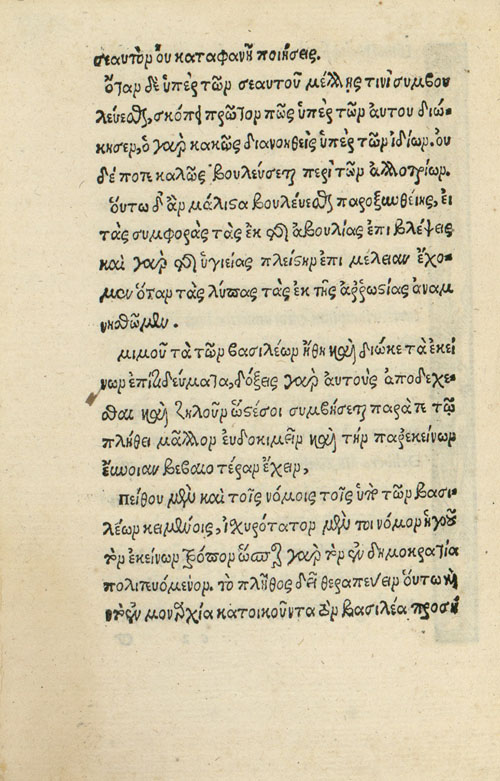 σεαυτὸν ὀυ καταφανῆ ποιήσεις.
ὅταν δὲ ὑπὲρ τῶν σεαυτοῦ μέλλῃς τινὶ συμβου
λέυεσθαι, σκόπει πρῶτον πῶς ὑπὲρ τῶν ἁυτου διώ-
κησεν, ὁ γὰρ κακῶς διανοηθεὶς ὑπὲρ τῶν ἰδίων. ὀυ
δέ ποτε καλῶς βουλέυσεται περὶ τῶν ἀλλοτρίων.
ὅυτω δ' ἂν μάλιστα βουλέυεσθαι παροξυνθείης, ἐι
τὰς συμφορὰς τὰς ἐκ τῆς ἀβουλίας ἐπι βλέψεις
καὶ γὰρ τῆς ὑγιείας πλείστην ἐπι μέλειαν ἔχο-
μεν ὅταν τὰς λύπας τὰς ἐκ τῆς ἀῤῥωστίας ἀναμ
νησθῶμεν.
μιμοῦ τὰ τῶν βασιλέων ἤθη καὶ διώκε τὰ ἐκεί
νων ἐπιτηδεύματα, δόξεις γὰρ ἀυτοὺς ἀποδεχε-
σθαι καὶ ζηλοῦν ὥστέ σοι συμβήσεται παρά τε τῷ
πλήθει μᾶλλον ἐυδοκιμεῖν καὶ τὴν παρ ἐκείνων
ἔυνοιαν βεβαιοτέραν ἔχειν,
πείθου μὲν καὶ τοῖς νόμοις τοῖς ὑπὸ τῶν βασι-
λέων κειμένοις, ἰσχυρότατον μὲν τοι νόμον ἡγοῦ
τὸν ἐκείνων τρόπον ὥσπερ γὰρ τὸν ἐν δημοκρατία
πολιτευόμενον. το πλῆθος δεῖ θεραπεύειν ὅυτω καὶ
τὸν ἐν μοναρχία κατοικοῦντα τὸν βασιλέα προσή